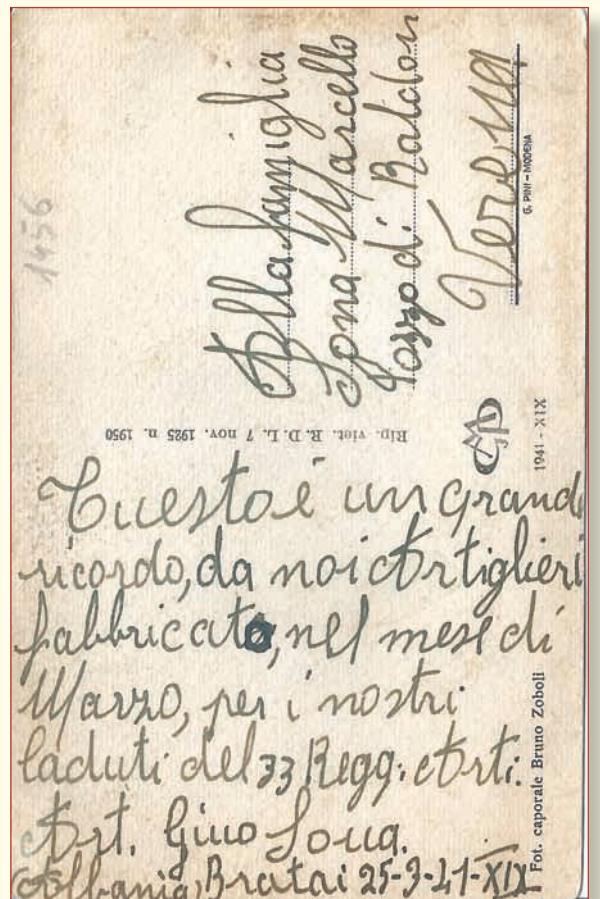 1456
Alla famiglia
Sona Marcello
Pozzo di Raldon
Verona
G. PINI - MODENA
Rip. viet. R. D. L. 7 nov. 1925 n. 1950
1941 - XIX
Fot. caporale Bruno Zoboli
Questo è un grande
ricordo, da noi Artiglieri
fabbricato, nel mese di
Marzo, per i nostri
Caduti del 33 Regg. Arti.
Art. Gino Sona.
Albania, Bratai 25-3-41-XIX